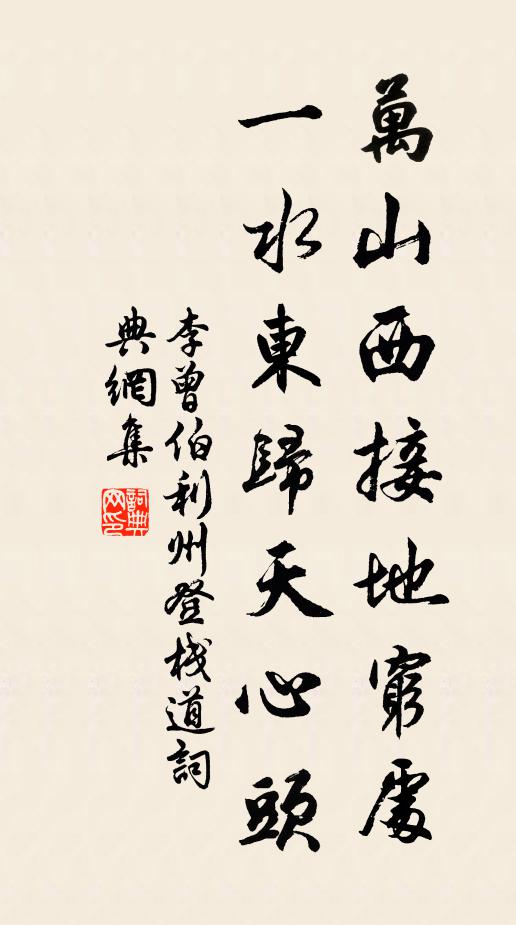 萬山西接地窮處
一水東歸天心頭
李曾伯利州登棧道詞
典網集
詞典網印